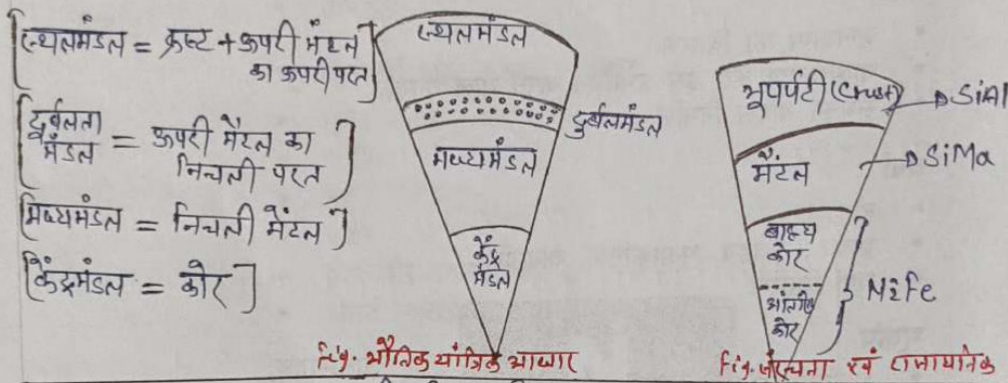 [स्थलमंडल = क्रस्ट + ऊपरी मैंटल
का ऊपरी परत]
[दुर्बलता
मंडल = ऊपरी मैंटल का
निचली परत]
[मध्यमंडल = निचली मैंटल]
[केंद्रमंडल = कोर]
स्थलमंडल
दुर्बलमंडल
मध्यमंडल
केंद्र
मंडल
Fig. भौतिक यांत्रिक आधार
भूपर्पटी (Crust) → SiAl
मैंटल → SiMa
बाह्य
कोर
आंतरिक
कोर
NiFe
Fig. संरचना एवं रासायनिक